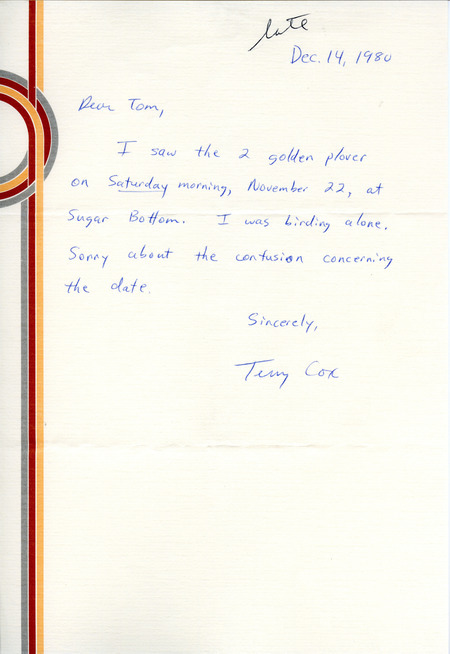 late
Dec. 14, 1980
Dear Tom,
I saw the 2 golden plover
on Saturday morning, November 22, at
Sugar Bottom. I was birding alone.
Sorry about the confusion concerning
the date.
Sincerely,
Terry Cox